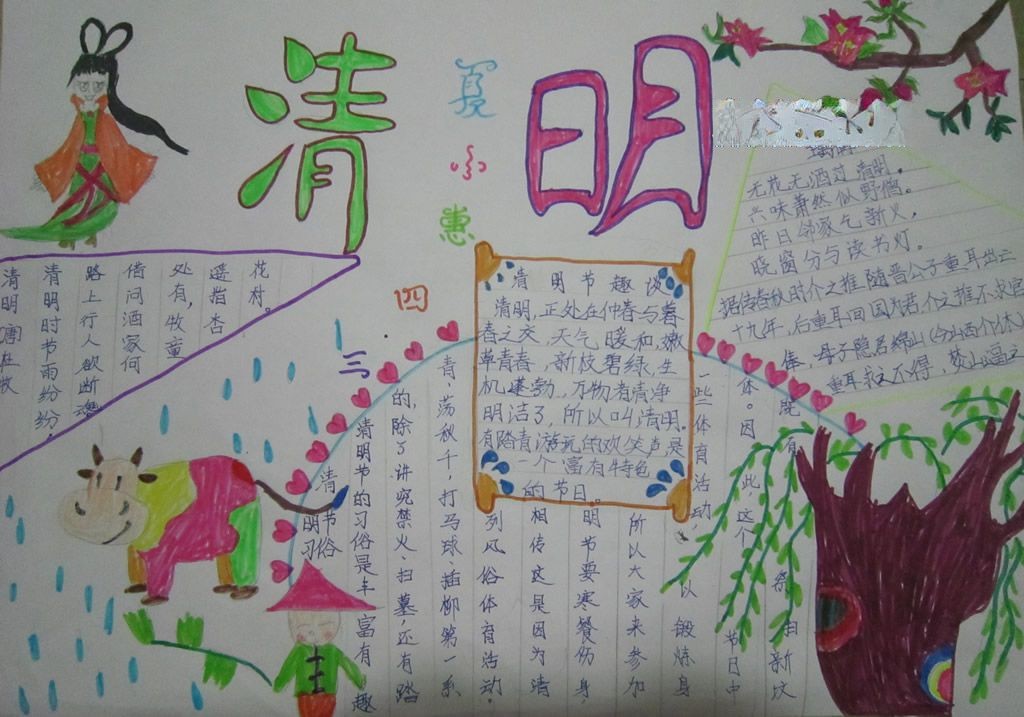 清明
夏小惠
四三
清明 唐杜牧
清明时节雨纷纷,
路上行人欲断魂
借问酒家何
处有,牧童
遥指杏
花村。
清明节趣谈
清明,正处在仲春与暮
春之交,天气暖和,嫩
草青春,新枝碧绿,生
机蓬勃,万物者清净
明洁了,所以叫清明。
有踏青游玩的欢笑声是
一个富有特色
的节日。
无花无酒过清明。
兴味萧然似野僧。
昨日邻家乞新火,
晓窗分与读书灯。
据传春秋时介之推随晋公子重耳出亡
十九年,后重耳回国为君,介之推不求官
俸,母子隐居绵山(今山西介休)
重耳求之不得,焚山逼之
清
明节
习俗
清明节的习俗是丰富有趣
的,除了讲究禁火、扫墓,还有踏
青、荡秋千,打马球、插柳第一系
列风俗体育活动。
相传这是因为清
明节要寒餐伤身,
所以大家来参加
一些体育活动,以锻炼身
体。因此,这个节日中
既有祭扫新坟